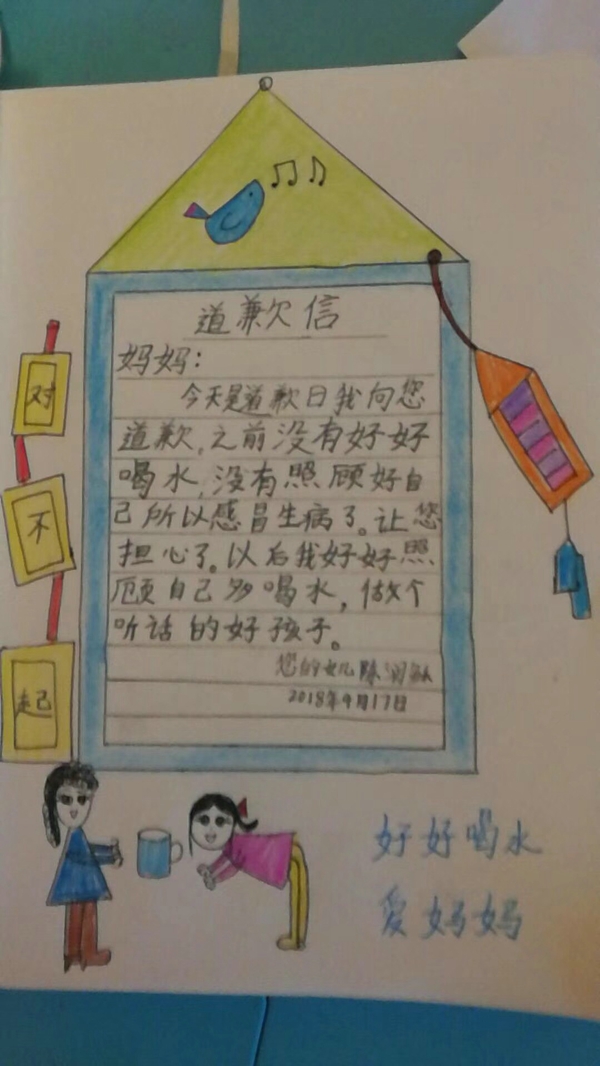 道歉信
妈妈：
今天是道歉日我向您
道歉，之前没有好好
喝水，没有照顾好自
己所以感冒生病了。让您
担心了。以后我好好照
顾自己多喝水，做个
听话的好孩子。
您的女儿陈润
2018年9月17日
对
不
起
好好喝水
爱妈妈